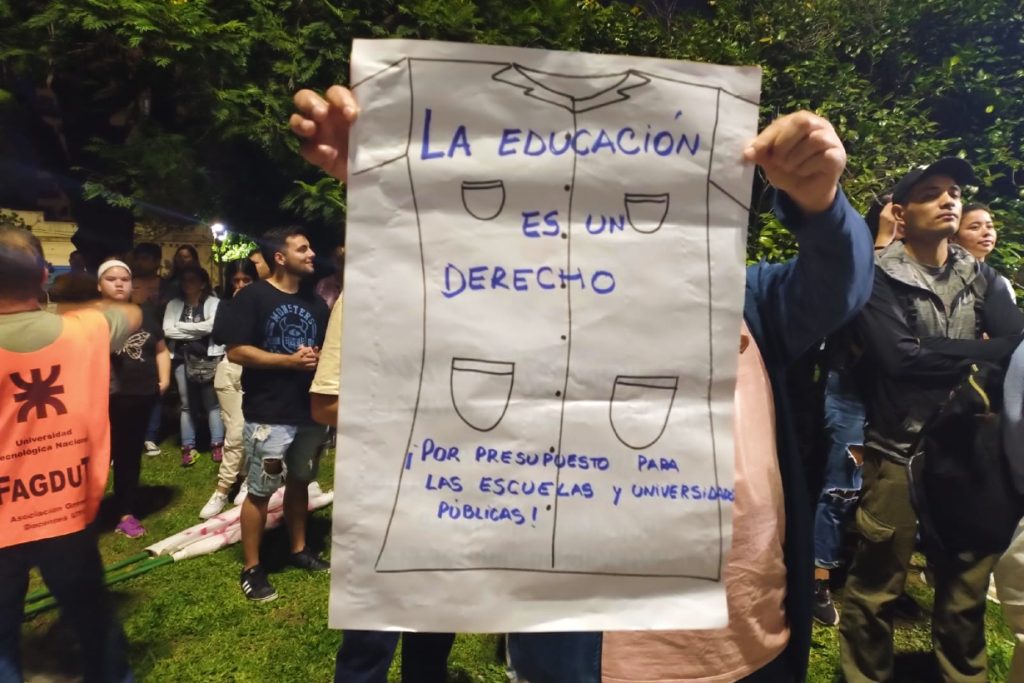 LA EDUCACIÓN
ES UN
DERECHO
¡POR PRESUPUESTO PARA
LAS ESCUELAS Y UNIVERSIDADES
PÚBLICAS!
Universidad
ecnológica Naciona
FAGDUT
Asociación
Docentes
MONSTERS